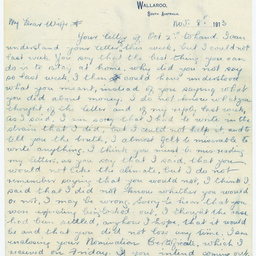 WALLAROO,
SOUTH AUSTRALIA
Nov 8th 1913
My Dear Wife
Your letter of Oct 2nd to hand. I can
understand your letter this week, but I could not
last week. You say that the best thing you can
do is to stay at home, why did you not say
so last week, I then could have understood
what you meant, instead of you saying what
you did about money. I do not know what you
thought of my letter and of my reply last week,
as I said, I am sorry that I had to write in the
strain that I did, but I could not help it and to
tell you the truth, I almost felt too miserable to
write anything. I think you must be misreading
my letters, as you say that I said, that you
would not like the climate, but I do not
remember saying that you would not, I think I
said that I did not know whether you would
or not, I may be wrong. Sorry to hear that you
were
had been settled, anyhow I hope that it would
be and that you did not lose any time. I am
enclosing your Nomination Certificate, which I
received on Friday. If you intend coming out,